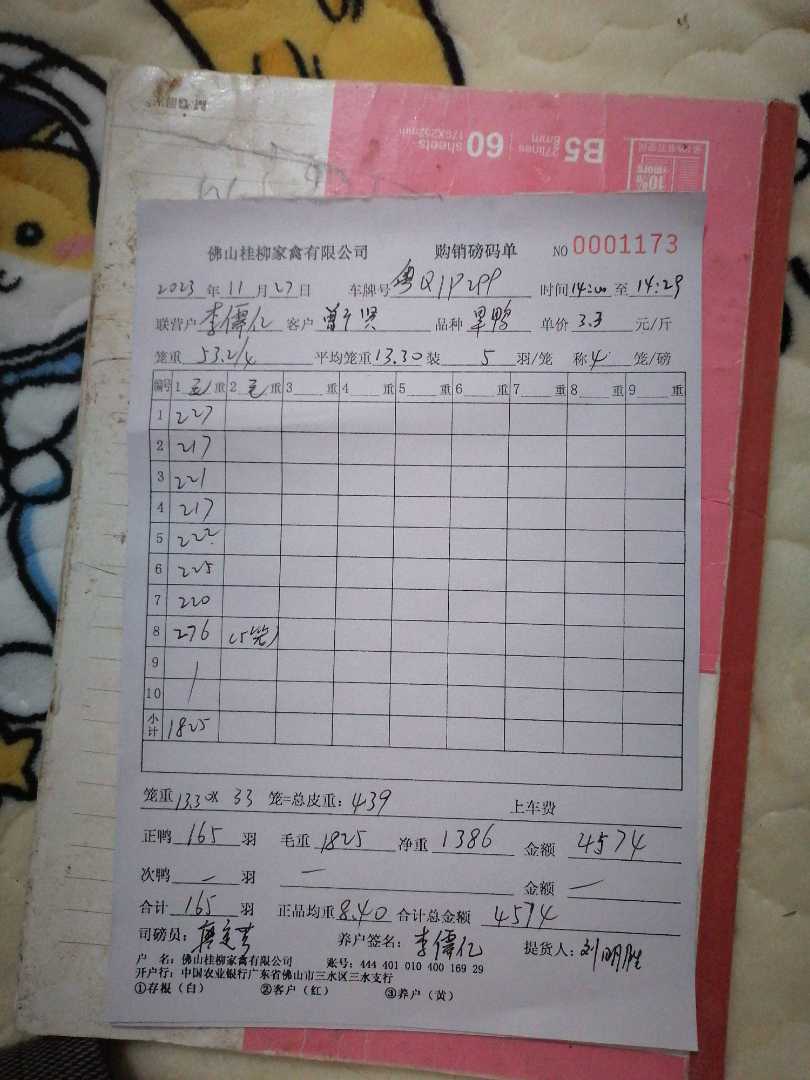 B5
8mm
27lines
179X252mm
60
sheets
10%
more
佛山桂柳家禽有限公司 购销磅码单 NO 0001173
2023 年 11 月 27 日 车牌号 粤Q1P299 时间 14:00 至 14:29
联营户 李儒亿 客户 曾广贤 品种 黑鸭 单价 3.3 元/斤
笼重 53.2/4 平均笼重 13.30 装 5 羽/笼 称 4 笼/磅
编号 1 毛 重 2 毛 重 3 重 4 重 5 重 6 重 7 重 8 重 9 重
1 227
2 217
3 221
4 217
5 222
6 225
7 220
8 276 (5笼)
9
10
小计 1825
笼重 13.30× 33 笼=总皮重: 439 上车费
正鸭 165 羽 毛重 1825 净重 1386 金额 4574
次鸭 — 羽 — 金额 —
合计 165 羽 正品均重 8.40 合计总金额 4574
司磅员: 养户签名: 李儒亿 提货人: 刘明胜
户 名: 佛山桂柳家禽有限公司 账号: 444 401 010 400 169 29
开户行: 中国农业银行广东省佛山市三水区三水支行
①存根（白） ②客户（红） ③养户（黄）